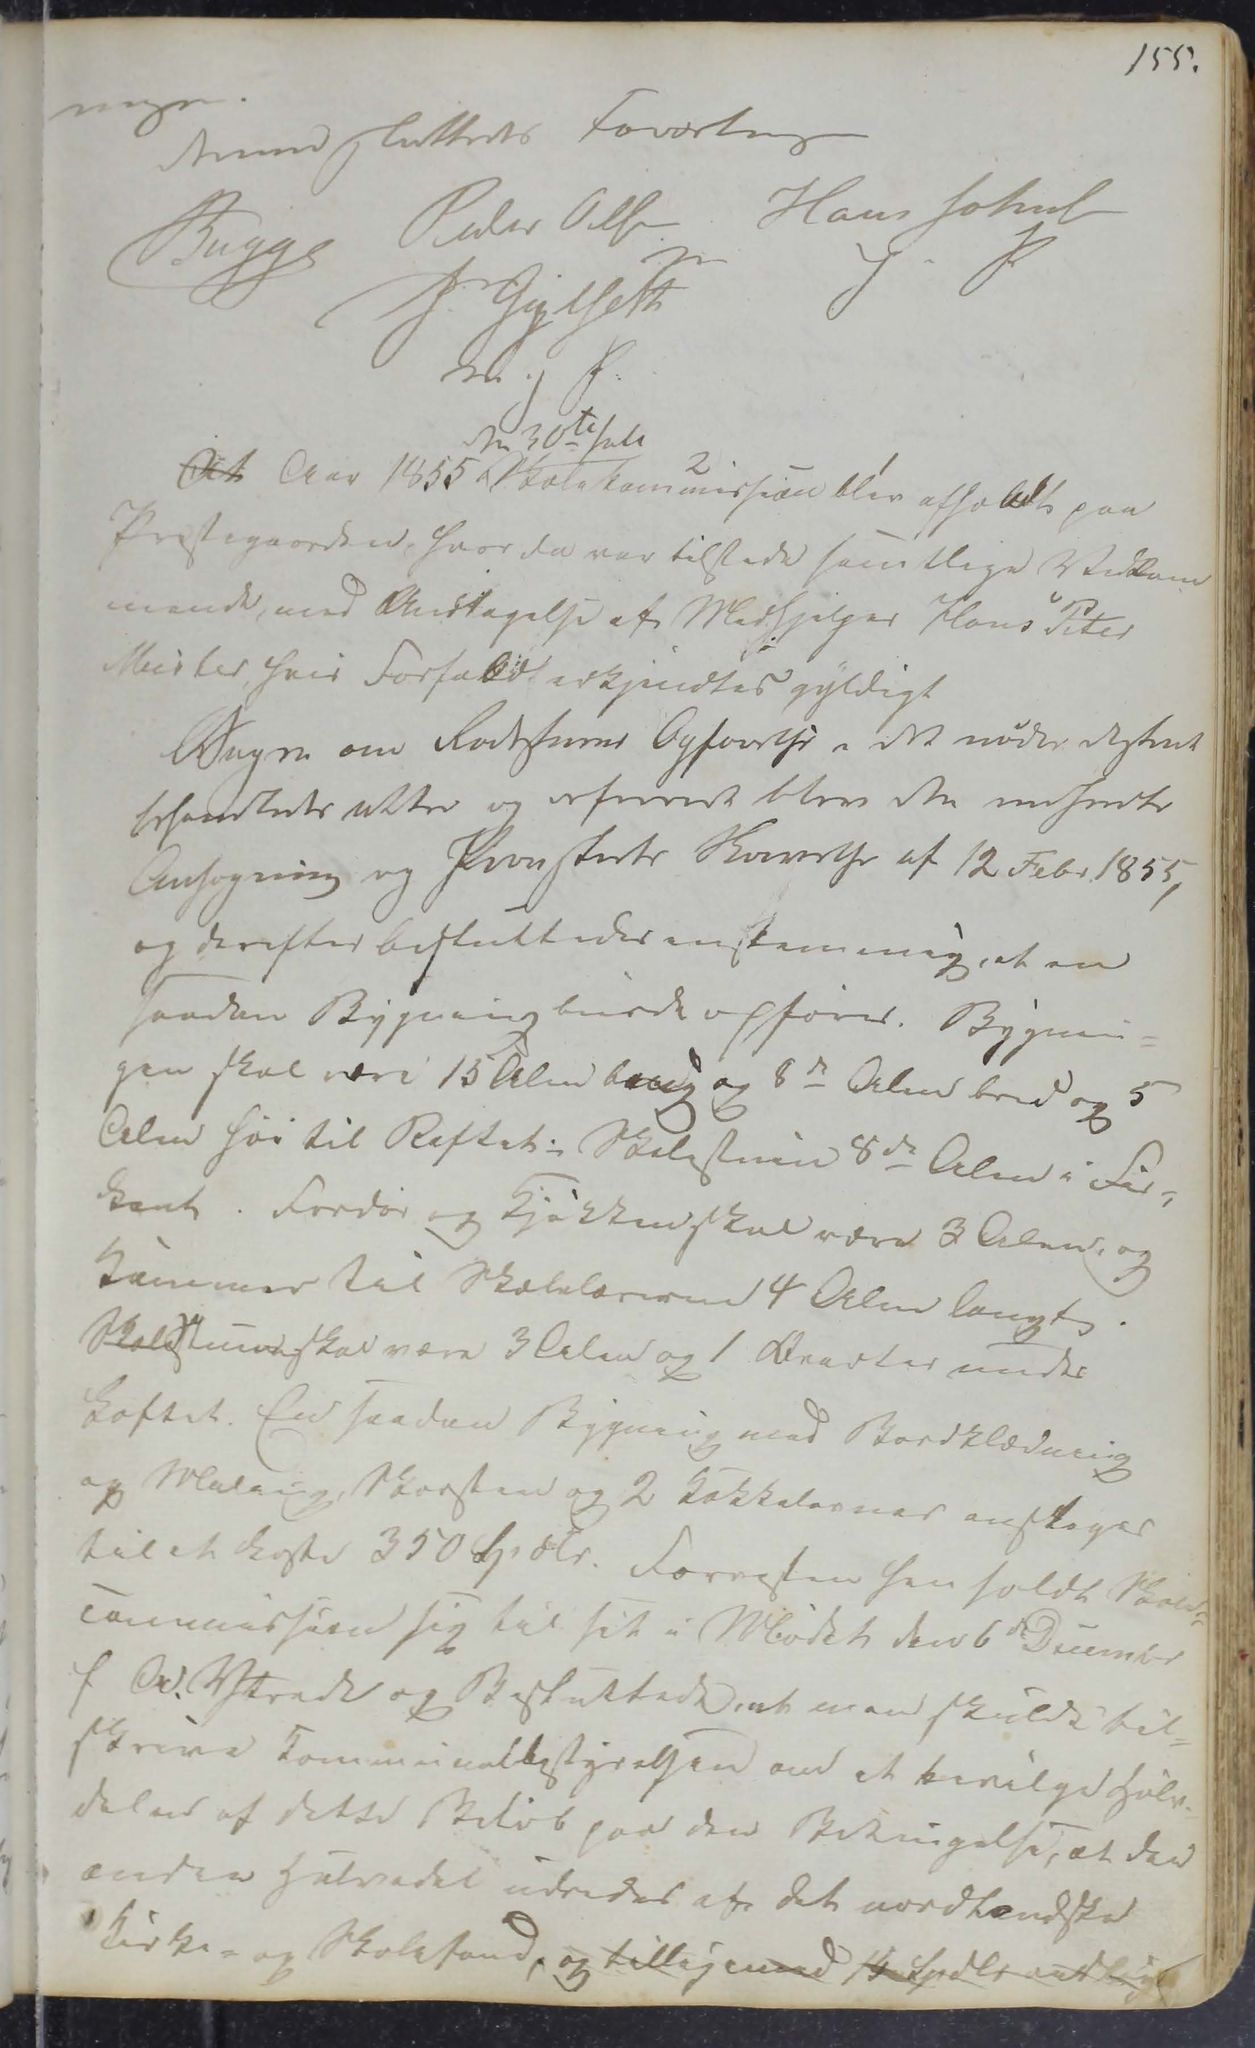 155.
Dermed sluttedes Forretningen
Bugge Peder Olsen Hans Johns
J. Gjylseth
m. j P.
den 30te Juli
At Aar 1855 Skolekommission blev afholdt paa
Prestegaarden, hvor da var tilstede samtlige Vedkom
mende, med Undtagelse af Medhjelper Hans Peter
Meister, hvis Forfald erkjendtes gyldigt
om Opførelse i det
behandledes atter og blev den
Ansøgning og Provstiets Skrivelse af 12 Febr. 1855,
og derefter besluttedes enstemmig, at en
saadan Bygning burde opføres. Bygnin=
gen skal være 15 Alen lang og 8de Alen bred og 5
Alen høi til Raftet: Skolestuen 8de Alen i Fir=
kant. Fordør og Kjøkken skal være 3 Alen, og
Kammer til Skolelæreren 4 Alen langt.
Skolestuen skal være 3 Alen og 1 Qvarter under
Loftet. En saadan Bygning med Bordklædning
og Maling, Skorsten og 2 Kakkelovner ansloges
til at koste 350 Spdlr. Forresten henholdt Skole=
commissionen sig til sit i Mødet den 6de December
f A. Ytrede og Besluttede, at man skulde til=
skrive Kommunalbestyrelsen om at bevilge Halv=
delen af dette Beløb paa den Betingelse, at den
anden Halvdel udredes af det nordlandske
Kirke= og Skolefond, og tilligemed 14 Spdlr